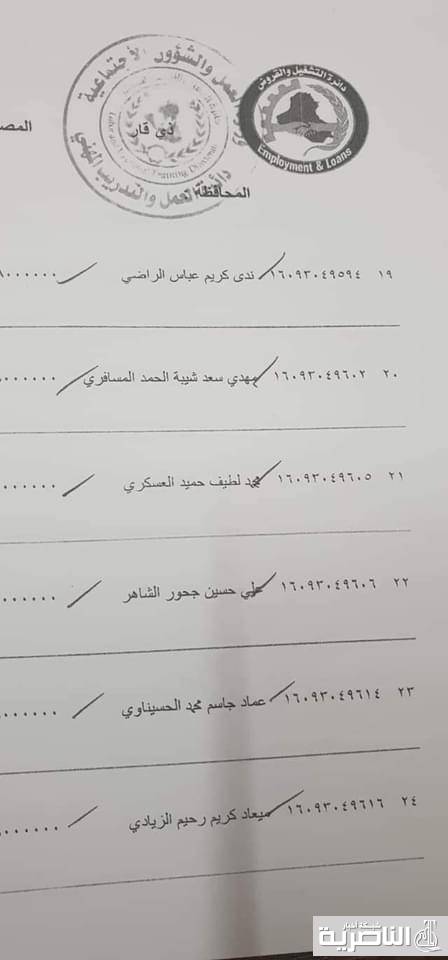 دائرة التشغيل والقروض
Employment & Loans
العمل والشؤون الاجتماعية
دائرة العمل والتدريب المهني
ذي قار
المحافظة
١٩ ١٦٠٩٣٠٤٩٥٩٤ ندى كريم عباس الراضي
٢٠ ١٦٠٩٣٠٤٩٦٠٢ مهدي سعد شيبة الحمد المسافري
٢١ ١٦٠٩٣٠٤٩٦٠٥ محمد لطيف حميد العسكري
٢٢ ١٦٠٩٣٠٤٩٦٠٦ علي حسين جحور الشاهر
٢٣ ١٦٠٩٣٠٤٩٦١٤ عماد جاسم محمد الحسيناوي
٢٤ ١٦٠٩٣٠٤٩٦١٦ ميعاد كريم رحيم الزيادي
شبكة أخبار
الناصرية